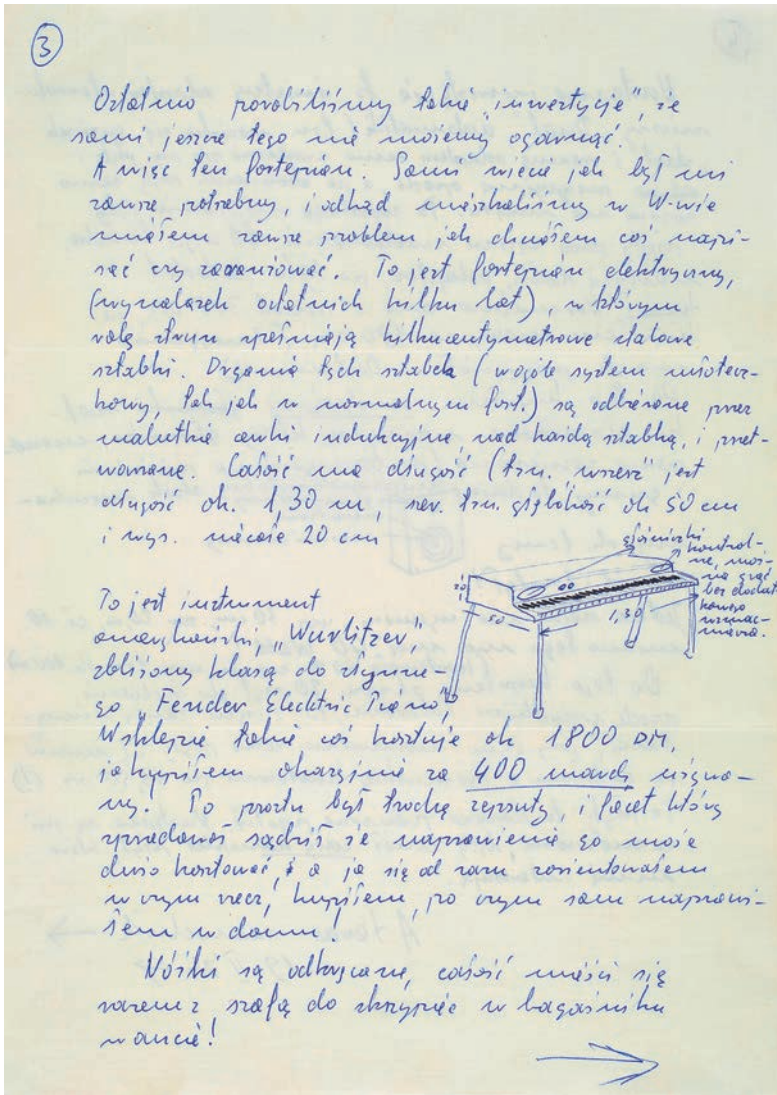 3
Ostatnio porobiliśmy takie „inwestycje”, że
sami jeszcze tego nie możemy ogarnąć.
A więc ten fortepian. Sami wiecie jak był mi
zawsze potrzebny, i odkąd mieszkaliśmy w W-wie
miałem zawsze problem jak chciałem coś napi-
sać czy zaaranżować. To jest fortepian elektryczny,
(wynalazek ostatnich kilku lat), w którym
rolę strun spełniają kilkucentymetrowe stalowe
sztabki. Drgania tych sztabek (wogóle system młotecz-
kowy, tak jak w normalnym fort.) są odbierane przez
malutkie cewki indukcyjne, nad każdą sztabką, i przet-
warzane. Całość ma długość (tzn. wszerz) jest
długość ok. 1,30 m, szer. tzn. głębokość ok 50 cm
i wys. niecałe 20 cm
głośniczki
kontrol-
ne, moż-
na grać
bez dodat-
kowego
wzmac-
niacza.
20
50
1,30
To jest instrument
amerykański, „Wurlitzer”,
zbliżony klasą do słynne-
go Fender Electric Piano,
W sklepie takie coś kosztuje ok 1800 DM,
ja kupiłem okazyjnie za 400 marek używa-
ny. Po prostu był trochę zepsuty, i facet który
sprzedawał sądził że naprawienie go może
dużo kosztować, a ja się od razu zorientowałem
w czym rzecz, kupiłem, po czym sam naprawi-
łem w domu.
Nóżki są odkręcane, całość mieści się
razem z szafą do skrzypiec w bagażniku
w aucie!